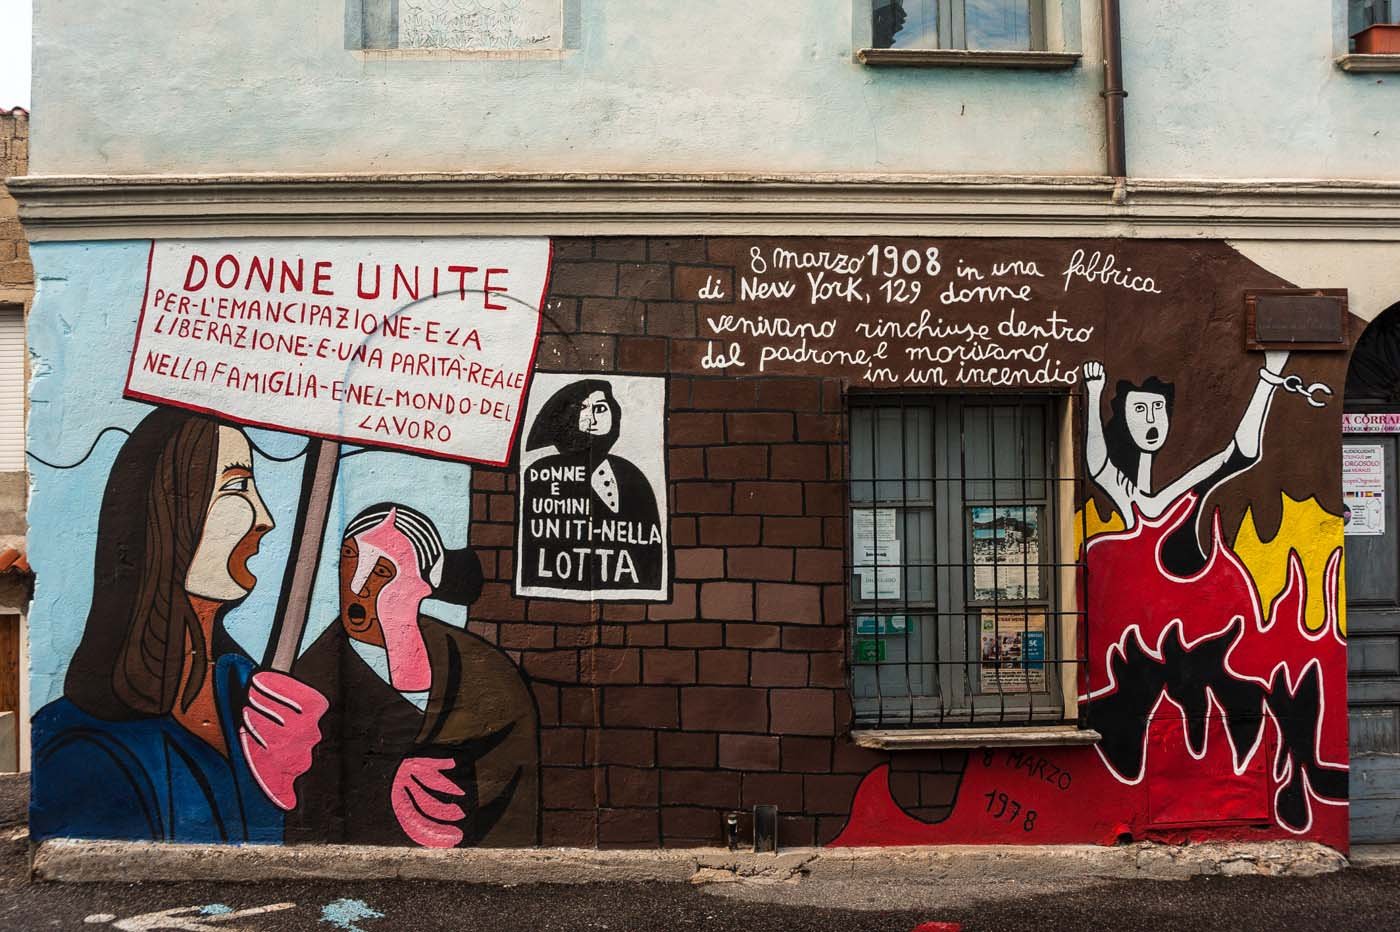 DONNE UNITE
PER-L'EMANCIPAZIONE-E-LA
LIBERAZIONE-E-UNA PARITÀ-REALE
NELLA FAMIGLIA-E-NEL-MONDO-DEL
LAVORO
DONNE
E
UOMINI
UNITI-NELLA
LOTTA
8 marzo 1908 in una fabbrica
di New York, 129 donne
venivano rinchiuse dentro
dal padrone, e morivano
in un incendio
8 MARZO
1978
ORGOSOLO